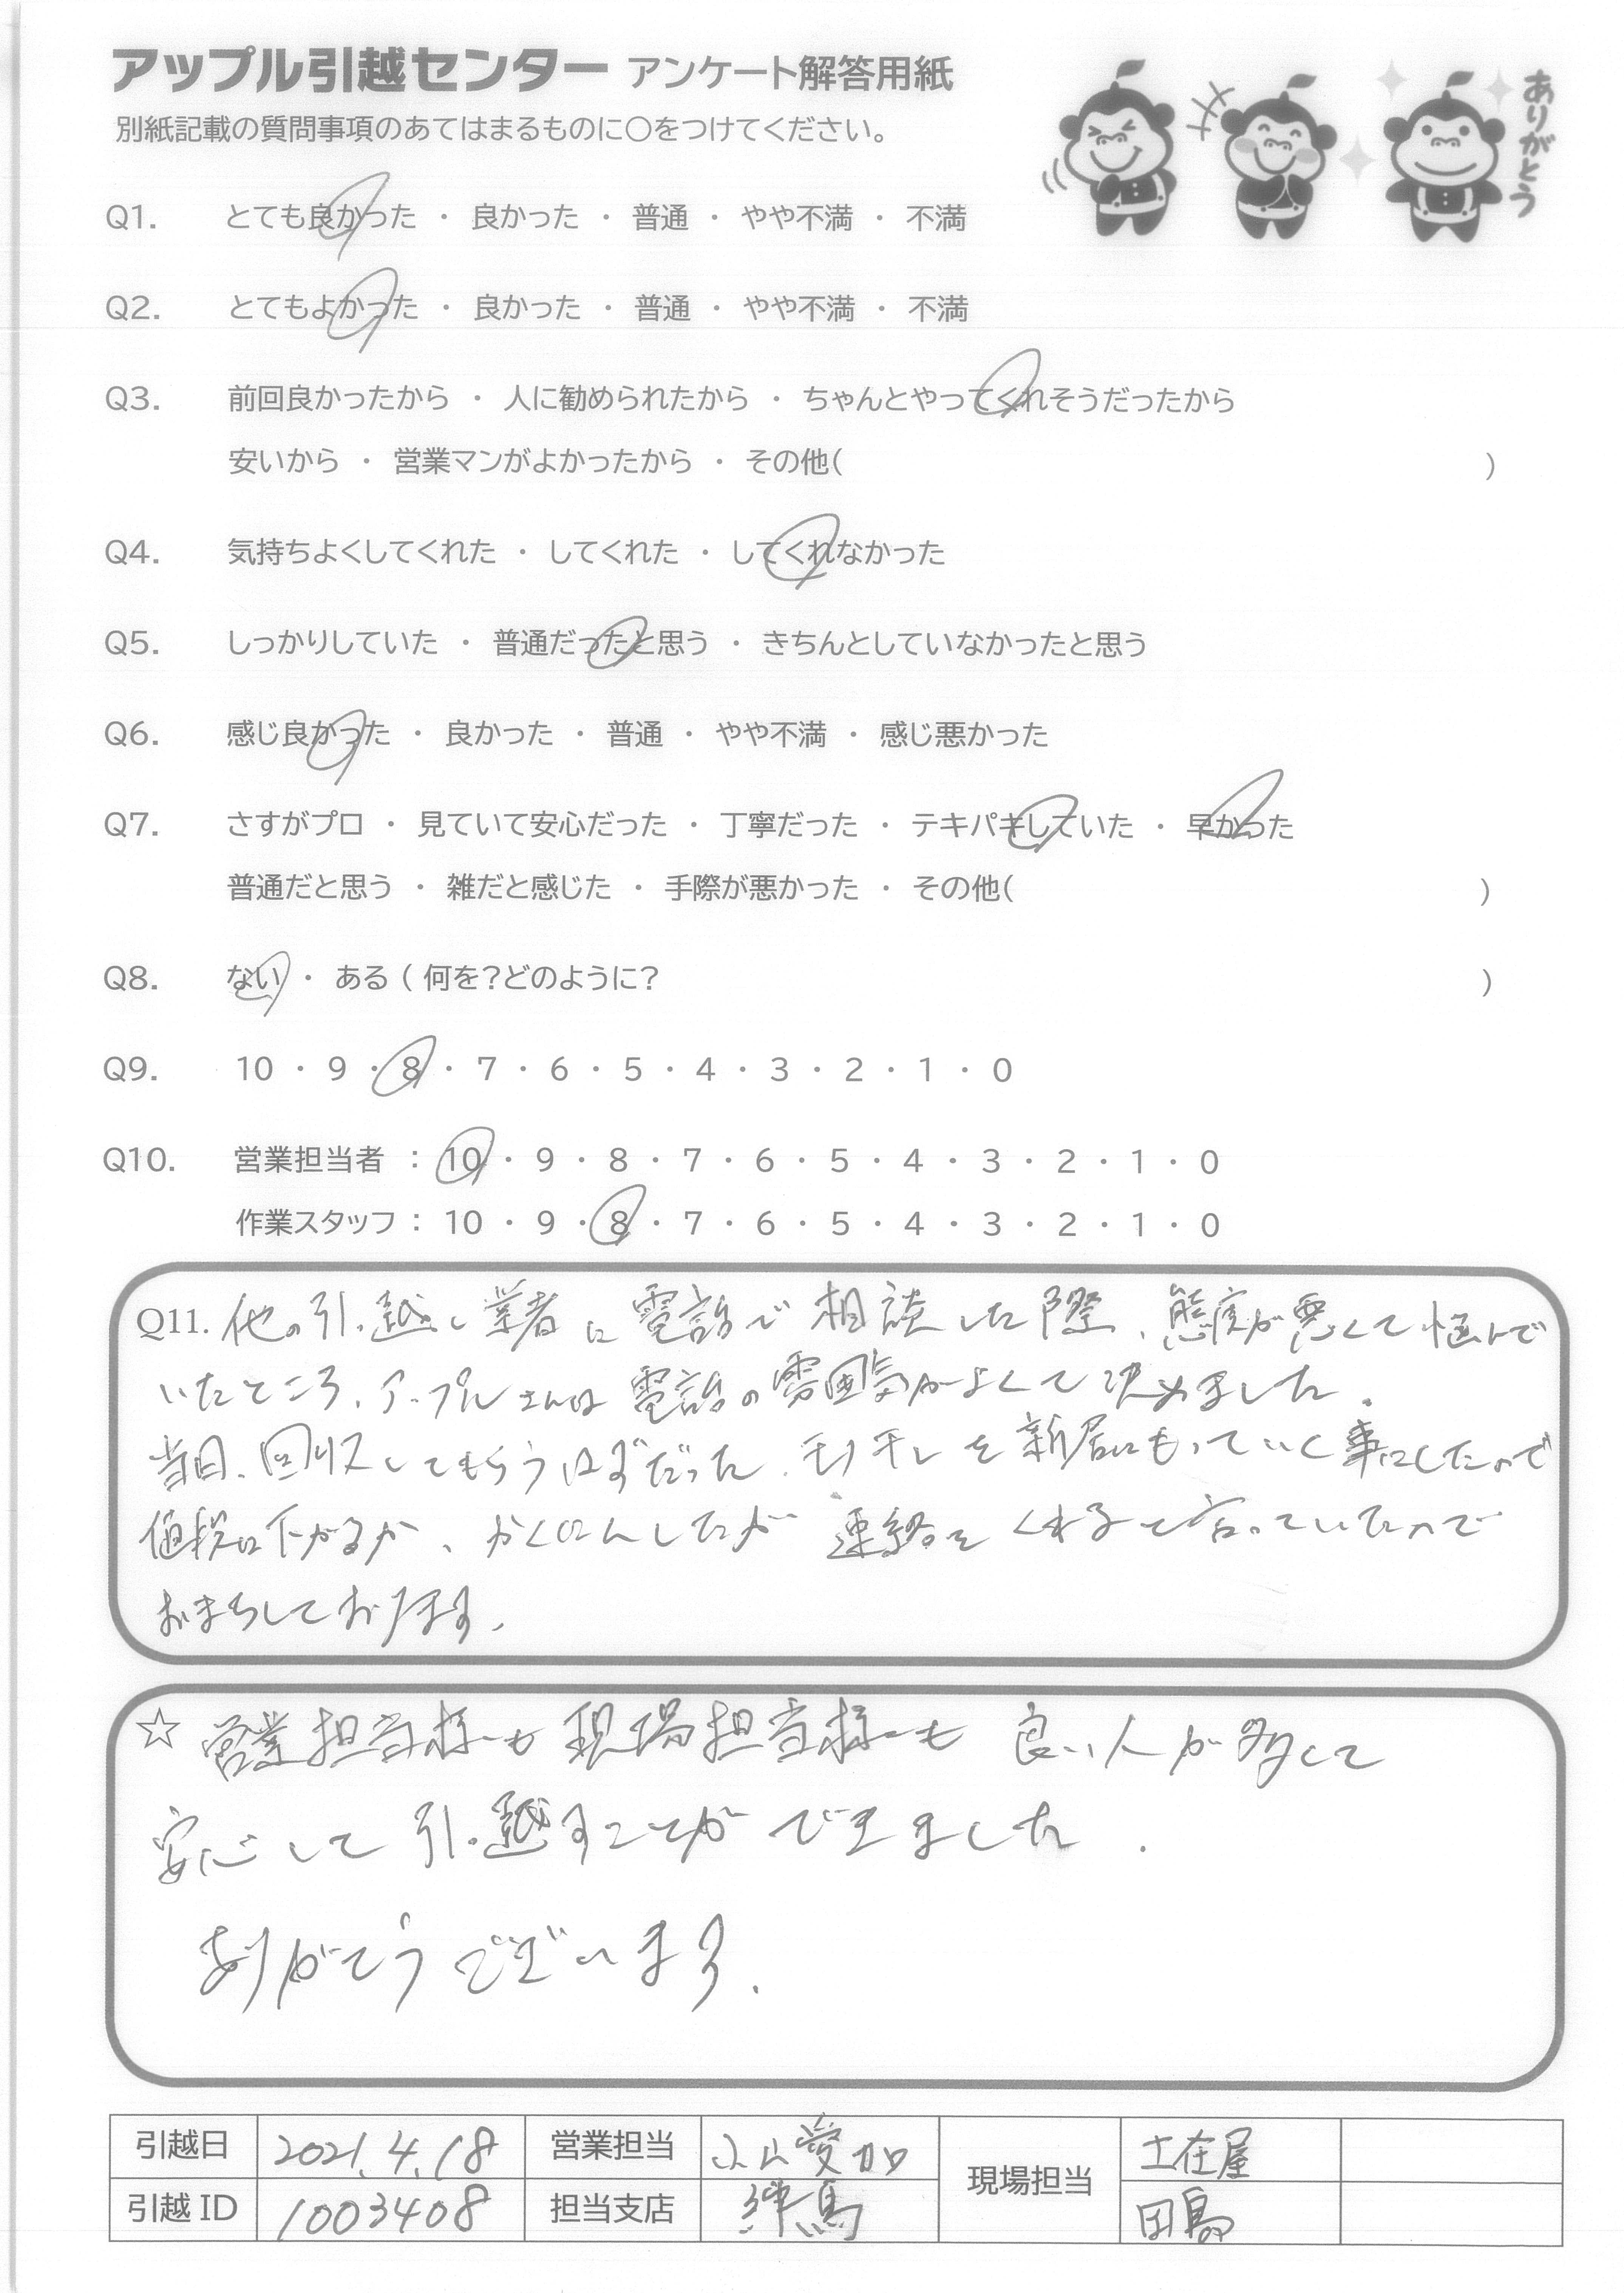 アップル引越センター アンケート解答用紙
別紙記載の質問事項のあてはまるものに〇をつけてください。
ありがとう
Q1. とても良かった ・ 良かった ・ 普通 ・ やや不満 ・ 不満
Q2. とてもよかった ・ 良かった ・ 普通 ・ やや不満 ・ 不満
Q3. 前回良かったから ・ 人に勧められたから ・ ちゃんとやってくれそうだったから
安いから ・ 営業マンがよかったから ・ その他( )
Q4. 気持ちよくしてくれた ・ してくれた ・ してくれなかった
Q5. しっかりしていた ・ 普通だったと思う ・ きちんとしていなかったと思う
Q6. 感じ良かった ・ 良かった ・ 普通 ・ やや不満 ・ 感じ悪かった
Q7. さすがプロ ・ 見ていて安心だった ・ 丁寧だった ・ テキパキしていた ・ 早かった
普通だと思う ・ 雑だと感じた ・ 手際が悪かった ・ その他( )
Q8. ない ・ ある ( 何を?どのように? )
Q9. 10 ・ 9 ・ 8 ・ 7 ・ 6 ・ 5 ・ 4 ・ 3 ・ 2 ・ 1 ・ 0
Q10. 営業担当者 : 10 ・ 9 ・ 8 ・ 7 ・ 6 ・ 5 ・ 4 ・ 3 ・ 2 ・ 1 ・ 0
作業スタッフ : 10 ・ 9 ・ 8 ・ 7 ・ 6 ・ 5 ・ 4 ・ 3 ・ 2 ・ 1 ・ 0
Q11. 他の引っ越し業者に電話で相談した際、態度が悪くて悩んで
いたところ、アップルさんは電話の雰囲気がよくて決めました。
当日、回収してもらうはずだった、モノ干しを新居にもっていく事にしたので
値段は下がるか、かくにんしたが連絡をくれると言っていたので
おまちしております。
☆ 営業担当様も現場担当様も良い人が多くて
安心して引っ越すことができました.
ありがとうございます.
引越日 2021.4.18 営業担当 小山愛加 現場担当 土在屋
引越 ID 1003408 担当支店 練馬 田島